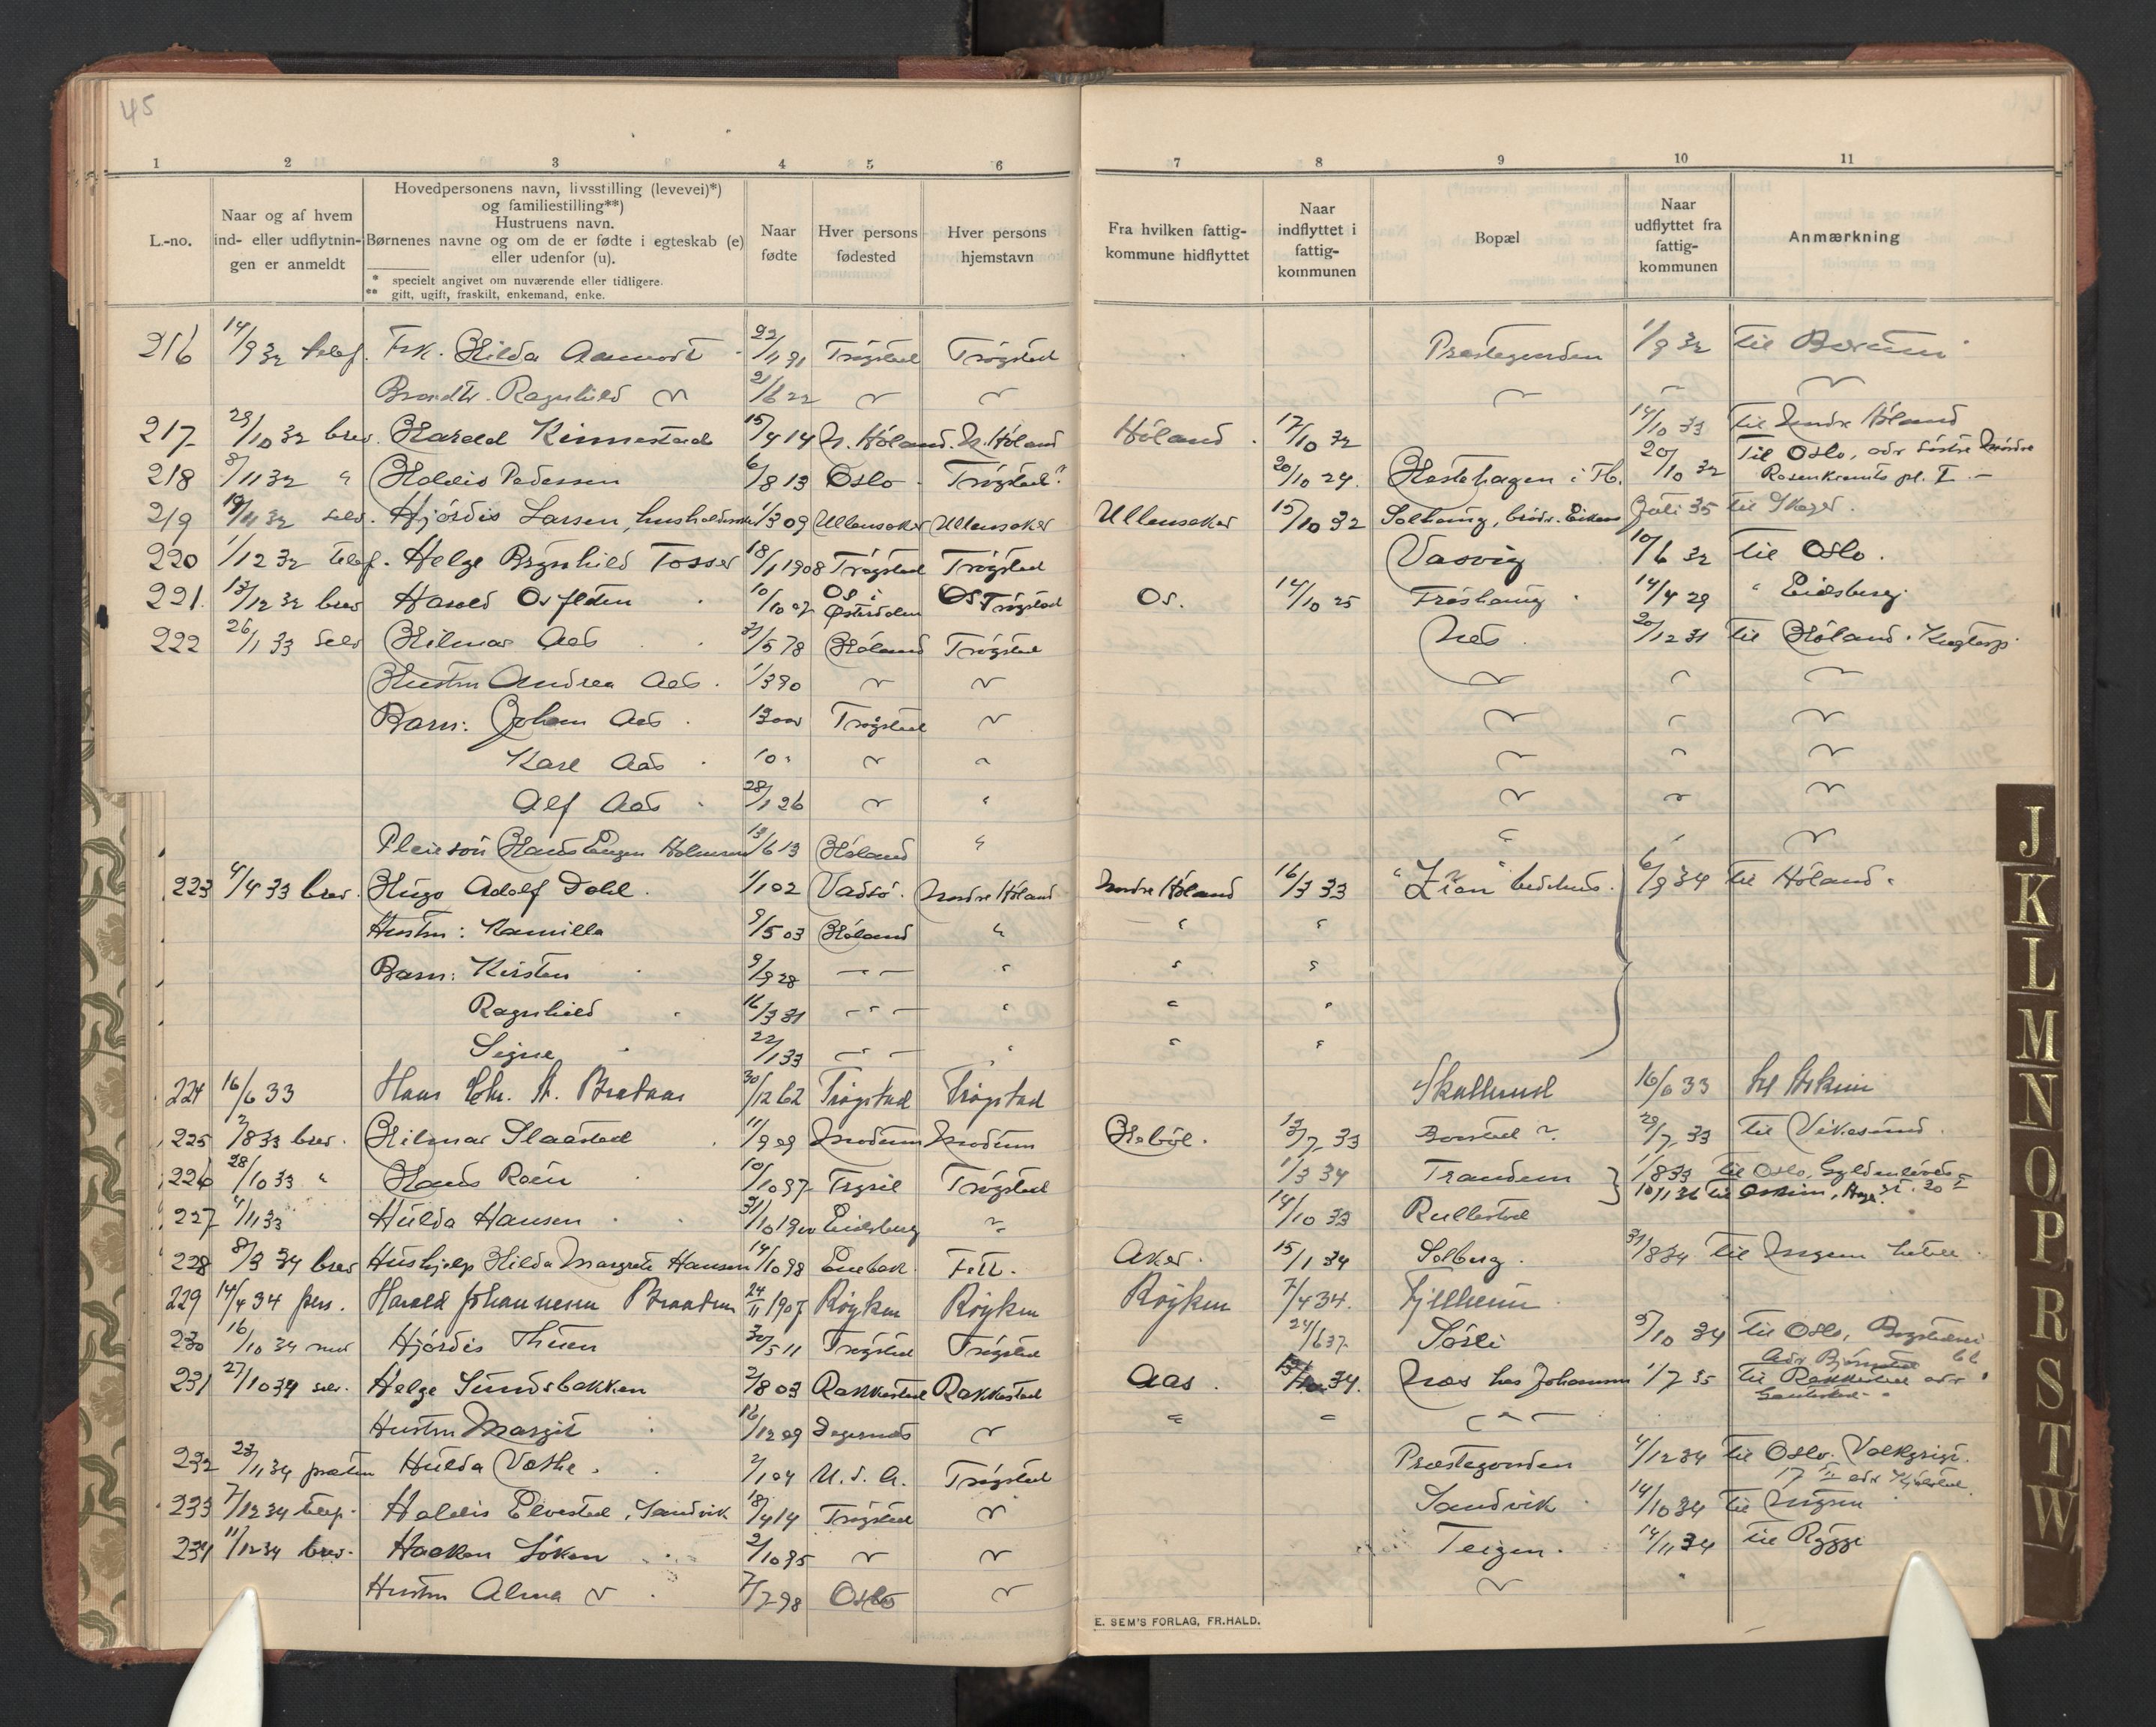 45
1 2 3 4 5 6 7 8 9 10 11
L.-no.
Naar og af hvem
ind- eller udflytnin-
gen er anmeldt
Hovedpersonens navn, livsstilling (levevei)*)
og familiestilling**)
Hustruens navn.
Børnenes navne og om de er fødte i egteskab (e)
eller udenfor (u).
* specielt angivet om nuværende eller tidligere.
** gift, ugift, fraskilt, enkemand, enke.
Naar
fødte
Hver persons
fødested
Hver persons
hjemstavn
Fra hvilken fattig-
kommune hidflyttet
Naar
indflyttet i
fattig-
kommunen
Bopæl
Naar
udflyttet fra
fattig-
kommunen
Anmærkning
216 14/9 32 telef. Frk. Hilda Aamodt 22/11 91 Trøgstad Trøgstad Prestegaarden 1/9 32 til Bærum
Brordtr. Ragnhild 21/6 22
217 29/10 32 brev. Harald Kinnestad 15/4 14 N. Høland. N. Høland Høland. 17/10 32 14/10 33 Til Nordre Høland
218 8/11 32 " Haldis Pedersen 6/8 13 Oslo Trøgstad? 20/10 29. Hestehagen i Tb. 20/10 32 Til Oslo, adr Søstre
Rosenkrants pl. I. -
219 19/11 32 selv. Hjørdis Larsen, husholderske 1/3 09 Ullensaker Ullensaker Ullensaker 15/10 32 Solhaug, Juli 35 til
220 1/12 32 telef. Helge Brynhild Fosser 18/1 1908 Trøgstad Trøgstad Vasvig 10/6 32 til Oslo.
221. 13/12 32 brev Harald Osflaten 10/10 07 Os i Østerdalen Os Trøgstad Os. 14/10 25 Frøshaug 14/4 29 " Eidsberg
222 26/1 33 selv Hilmar Aas 31/5 78 Høland Trøgstad Nes 20/12 31 til Høland.
Hustru Andrea Aas. 1/3 90
Barn: Johan Aas. 13 aar Trøgstad
Kare Aas 10 "
Alf Aas 28/1 26 "
Pleiesøn Hans Eugen Holmsen 13/6 13 Høland "
223 4/4 33 brev. Hugo Adolf Dahl. 1/1 02 Vadsø. Nordre Høland Nordre Høland 16/3 33 "Zion" bedehus. 6/9 34 til Høland.
Hustru: Kamilla 9/5 03 Høland " " "
Barn: Kirsten 9/9 28 — — " " "
Ragnhild 16/3 31 - " — " " "
Signe 22/1 33 — " — " " "
224 16/6 33 Hans Chr. A. Brataas 30/12 62 Trøgstad Trøgstad Skallerud 16/6 33 til Askim
225 17/8 33 brev. Hilmar Slaastad 11/9 09 Modum Modum Hobøl. 13/7 33 29/7 33 til Vikesund.
226 28/10 33 " Hans Roen 10/10 97 Trysil Trøgstad 1/3 34 Trandem 1/8 33 til Oslo, Gyldenløves
10/1 36 til Askim,
227 4/11 33 Hulda Hansen 31/10 1900 Eidsberg 14/10 33 Rullestad
228 8/3 34 brev Hushjelp Hilda Margrete Hansen 14/10 98 Enebak Fett. Aker. 15/1 34 Solberg. 31/8 34 til Mysen hotell.
229 14/4 34 pers. Harald Johannesen Braatun 24/11 1907 Røyken Røyken Røyken 7/4 34. Fjellheim
230 16/10 34 Hjørdis Thuen 30/5 11 Trøgstad Trøgstad 24/6 37. Sørli 5/10 34 til Oslo, Bogstadvei
adr 66
231 27/10 34 selv. Helge Sundsbakken 2/8 03 Rakkestad Rakkestad Aas. 34. Næs hos Johannes 1/7 35 til Rakkestad adr
Hustru Margit 16/12 09 Degernes " "
232 23/11 34 Hulda Vasthe. 2/1 04 U. S. A. Trøgstad Prestegaarden 4/12 34 til Oslo.
17
233 7/12 34 telef. Haldis Elvestad, Sandvik 18/4 14 Trøgstad Sandvik 14/10 34 til Mysen
234 11/12 34 brev. Haaken Løken 2/10 95 Teigen. 14/11 34 til Rygge
Hustru Alma 7/7 98 Oslo
E. SEM'S FORLAG, FR.HALD.
J
K
L
M
N
O
P
R
S
T
W